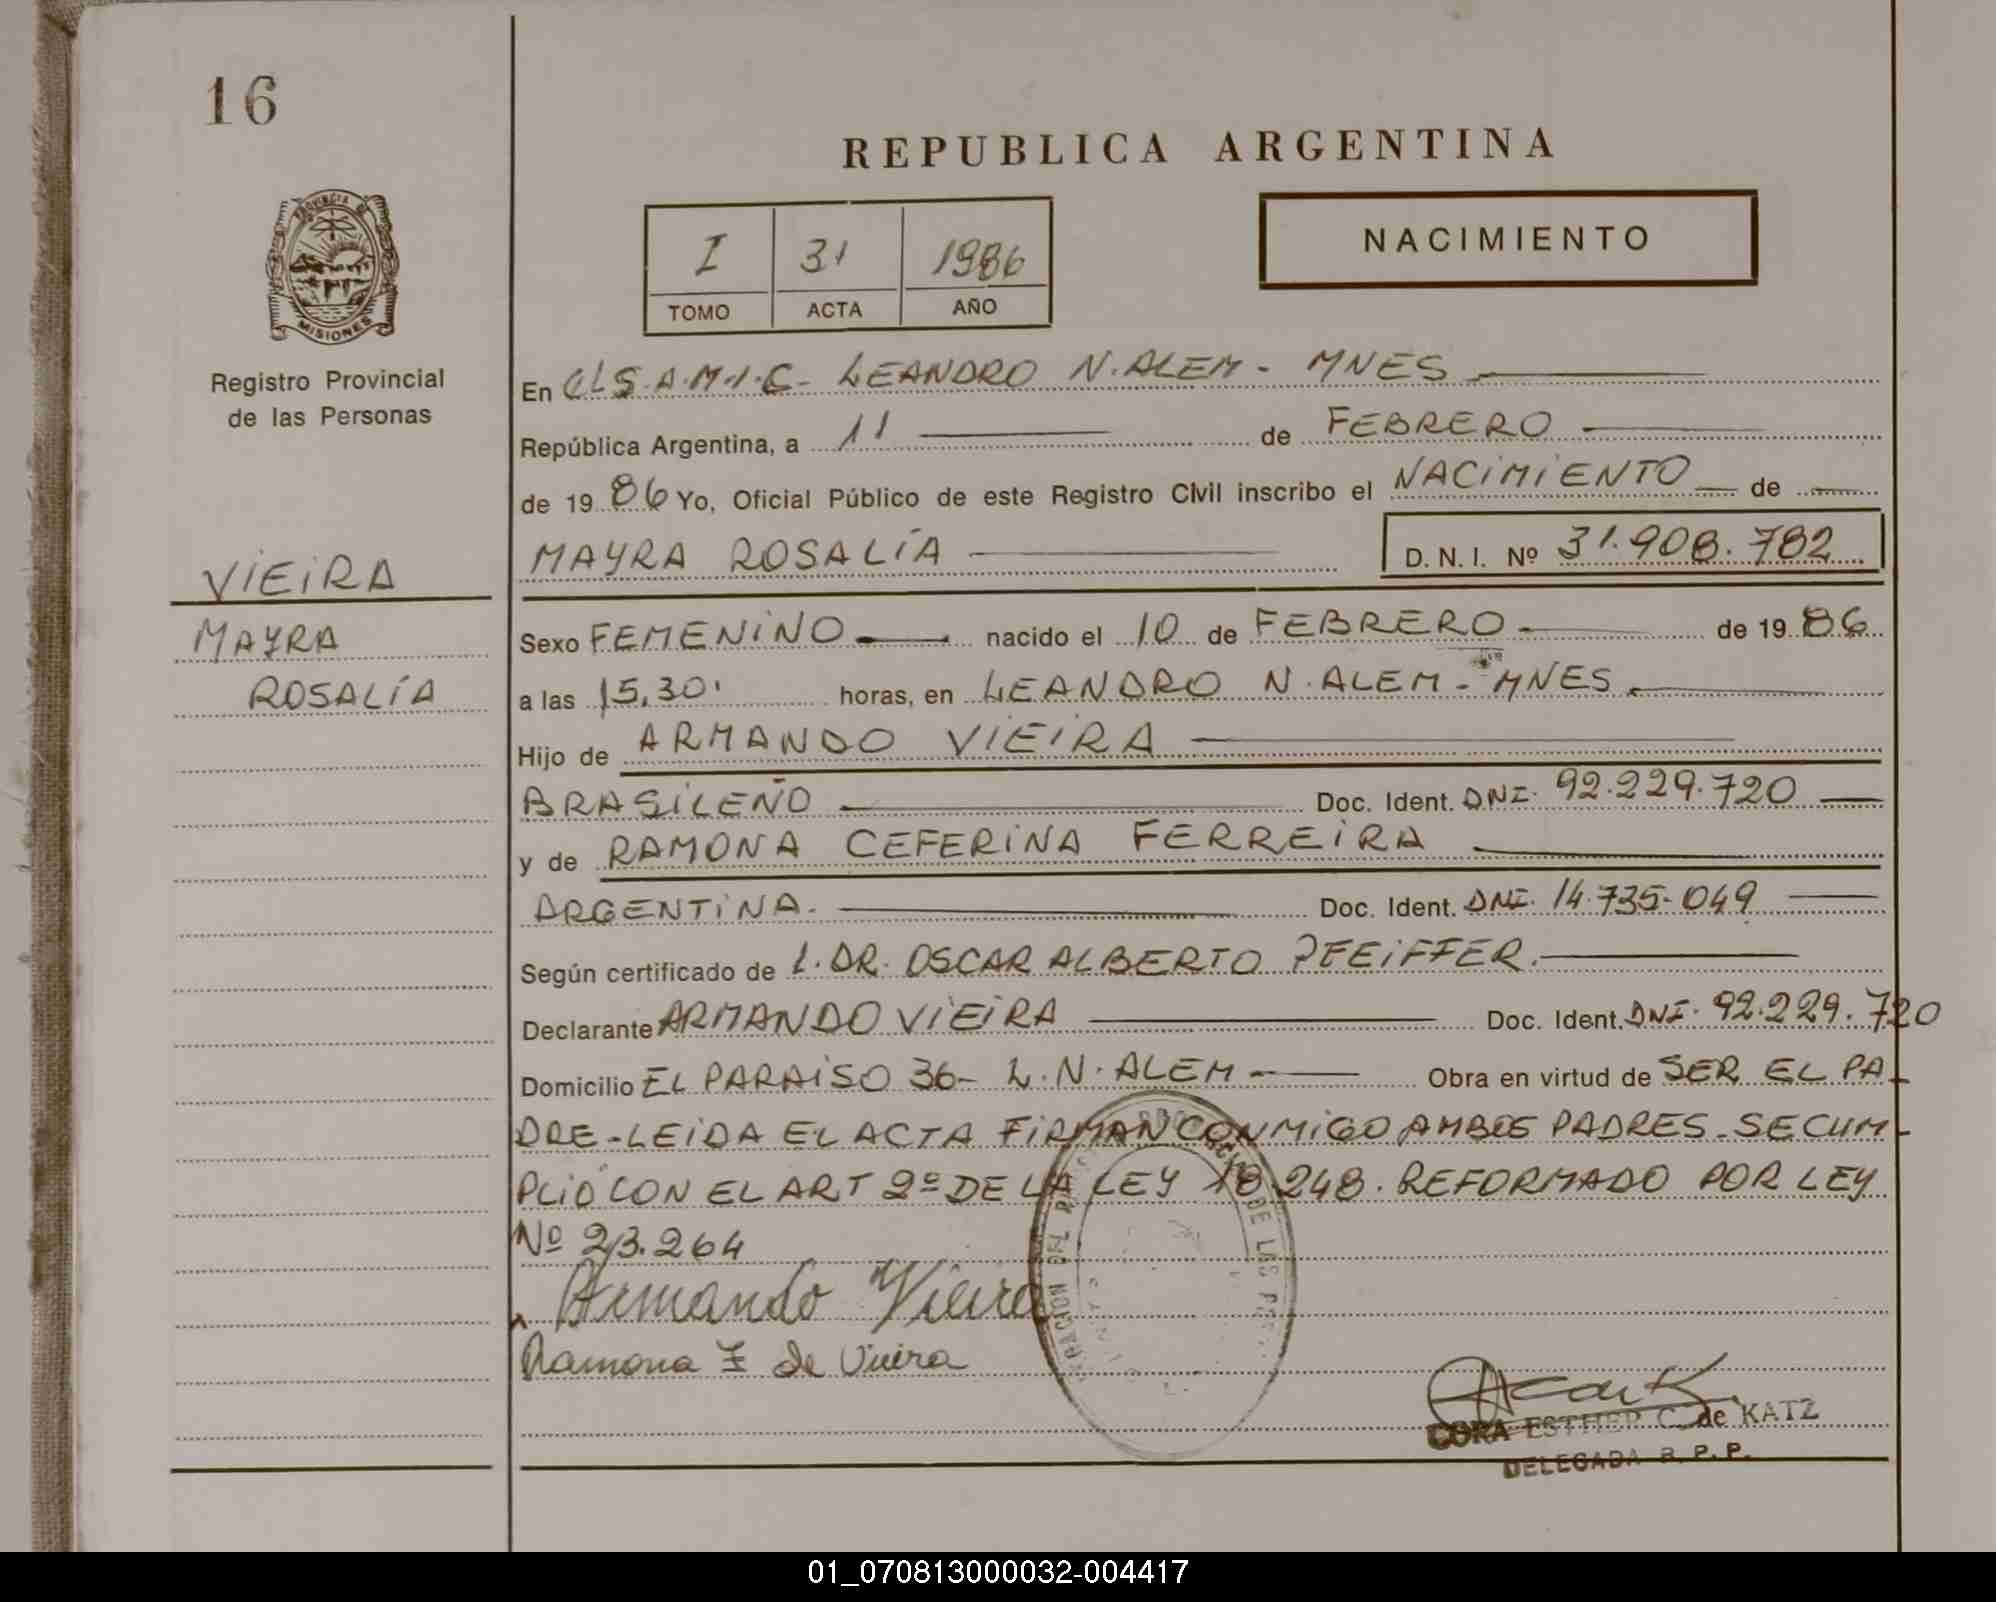 16
REPUBLICA ARGENTINA
NACIMIENTO
I 31 1986
TOMO ACTA AÑO
PROVINCIA DE
MISIONES
Registro Provincial
de las Personas
VIEIRA
MAYRA
ROSALÍA
En CLS.A.M.I.C- LEANDRO N.ALEM - MNES
República Argentina, a 11 de FEBRERO
de 1986 Yo, Oficial Público de este Registro Civil inscribo el NACIMIENTO de
MAYRA ROSALÍA D.N.I. Nº 31.908.782
Sexo FEMENINO nacido el 10 de FEBRERO de 1986
a las 15,30' horas, en LEANDRO N.ALEM - MNES
Hijo de ARMANDO VIEIRA
BRASILEÑO Doc. Ident. DNI. 92.229.720
y de RAMONA CEFERINA FERREIRA
ARGENTINA. Doc. Ident. DNI. 14.735.049
Según certificado de L. DR. OSCAR ALBERTO PFEIFFER.
Declarante ARMANDO VIEIRA Doc. Ident. DNI. 92.229.720
Domicilio EL PARAISO 36- L.N.ALEM - Obra en virtud de SER EL PA
DRE-LEIDA EL ACTA FIRMAN CONMIGO AMBOS PADRES-SE CUM-
PLIÓ CON EL ART 2º DE LA LEY 18.248. REFORMADO POR LEY
Nº 23.264
Armando Vieira
Ramona F de Vieira
DE LAS
CORA ESTHER C. de KATZ
DELEGADA R. P. P.
01_070813000032-004417